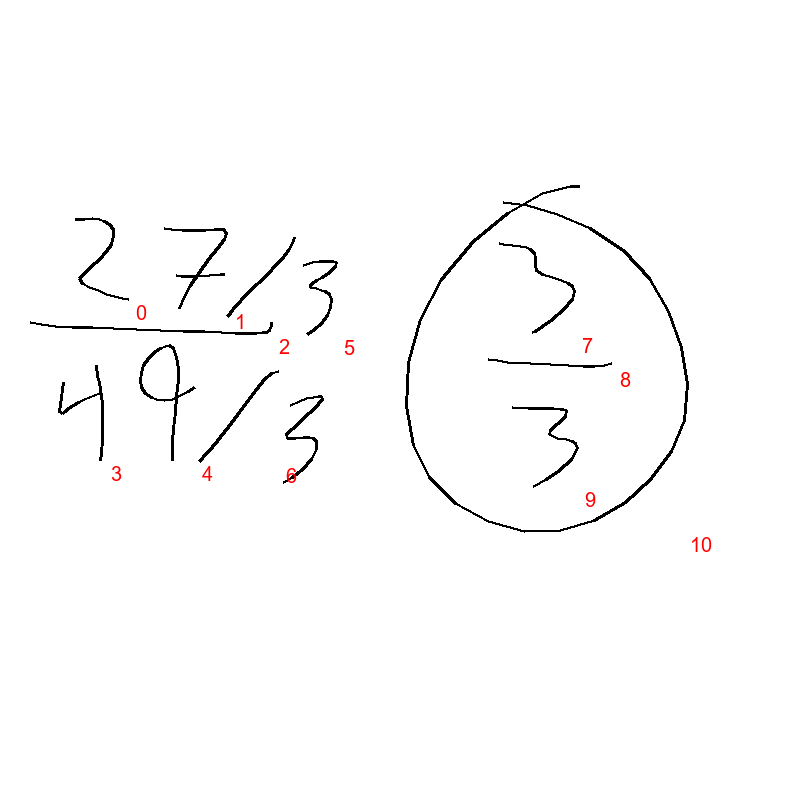 27/3
49/3
3
3
0
1
2
3
4
5
6
7
8
9
10